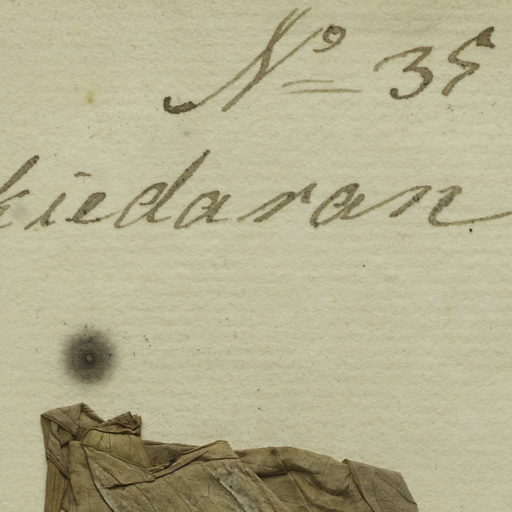 Nº 35
kiedaran